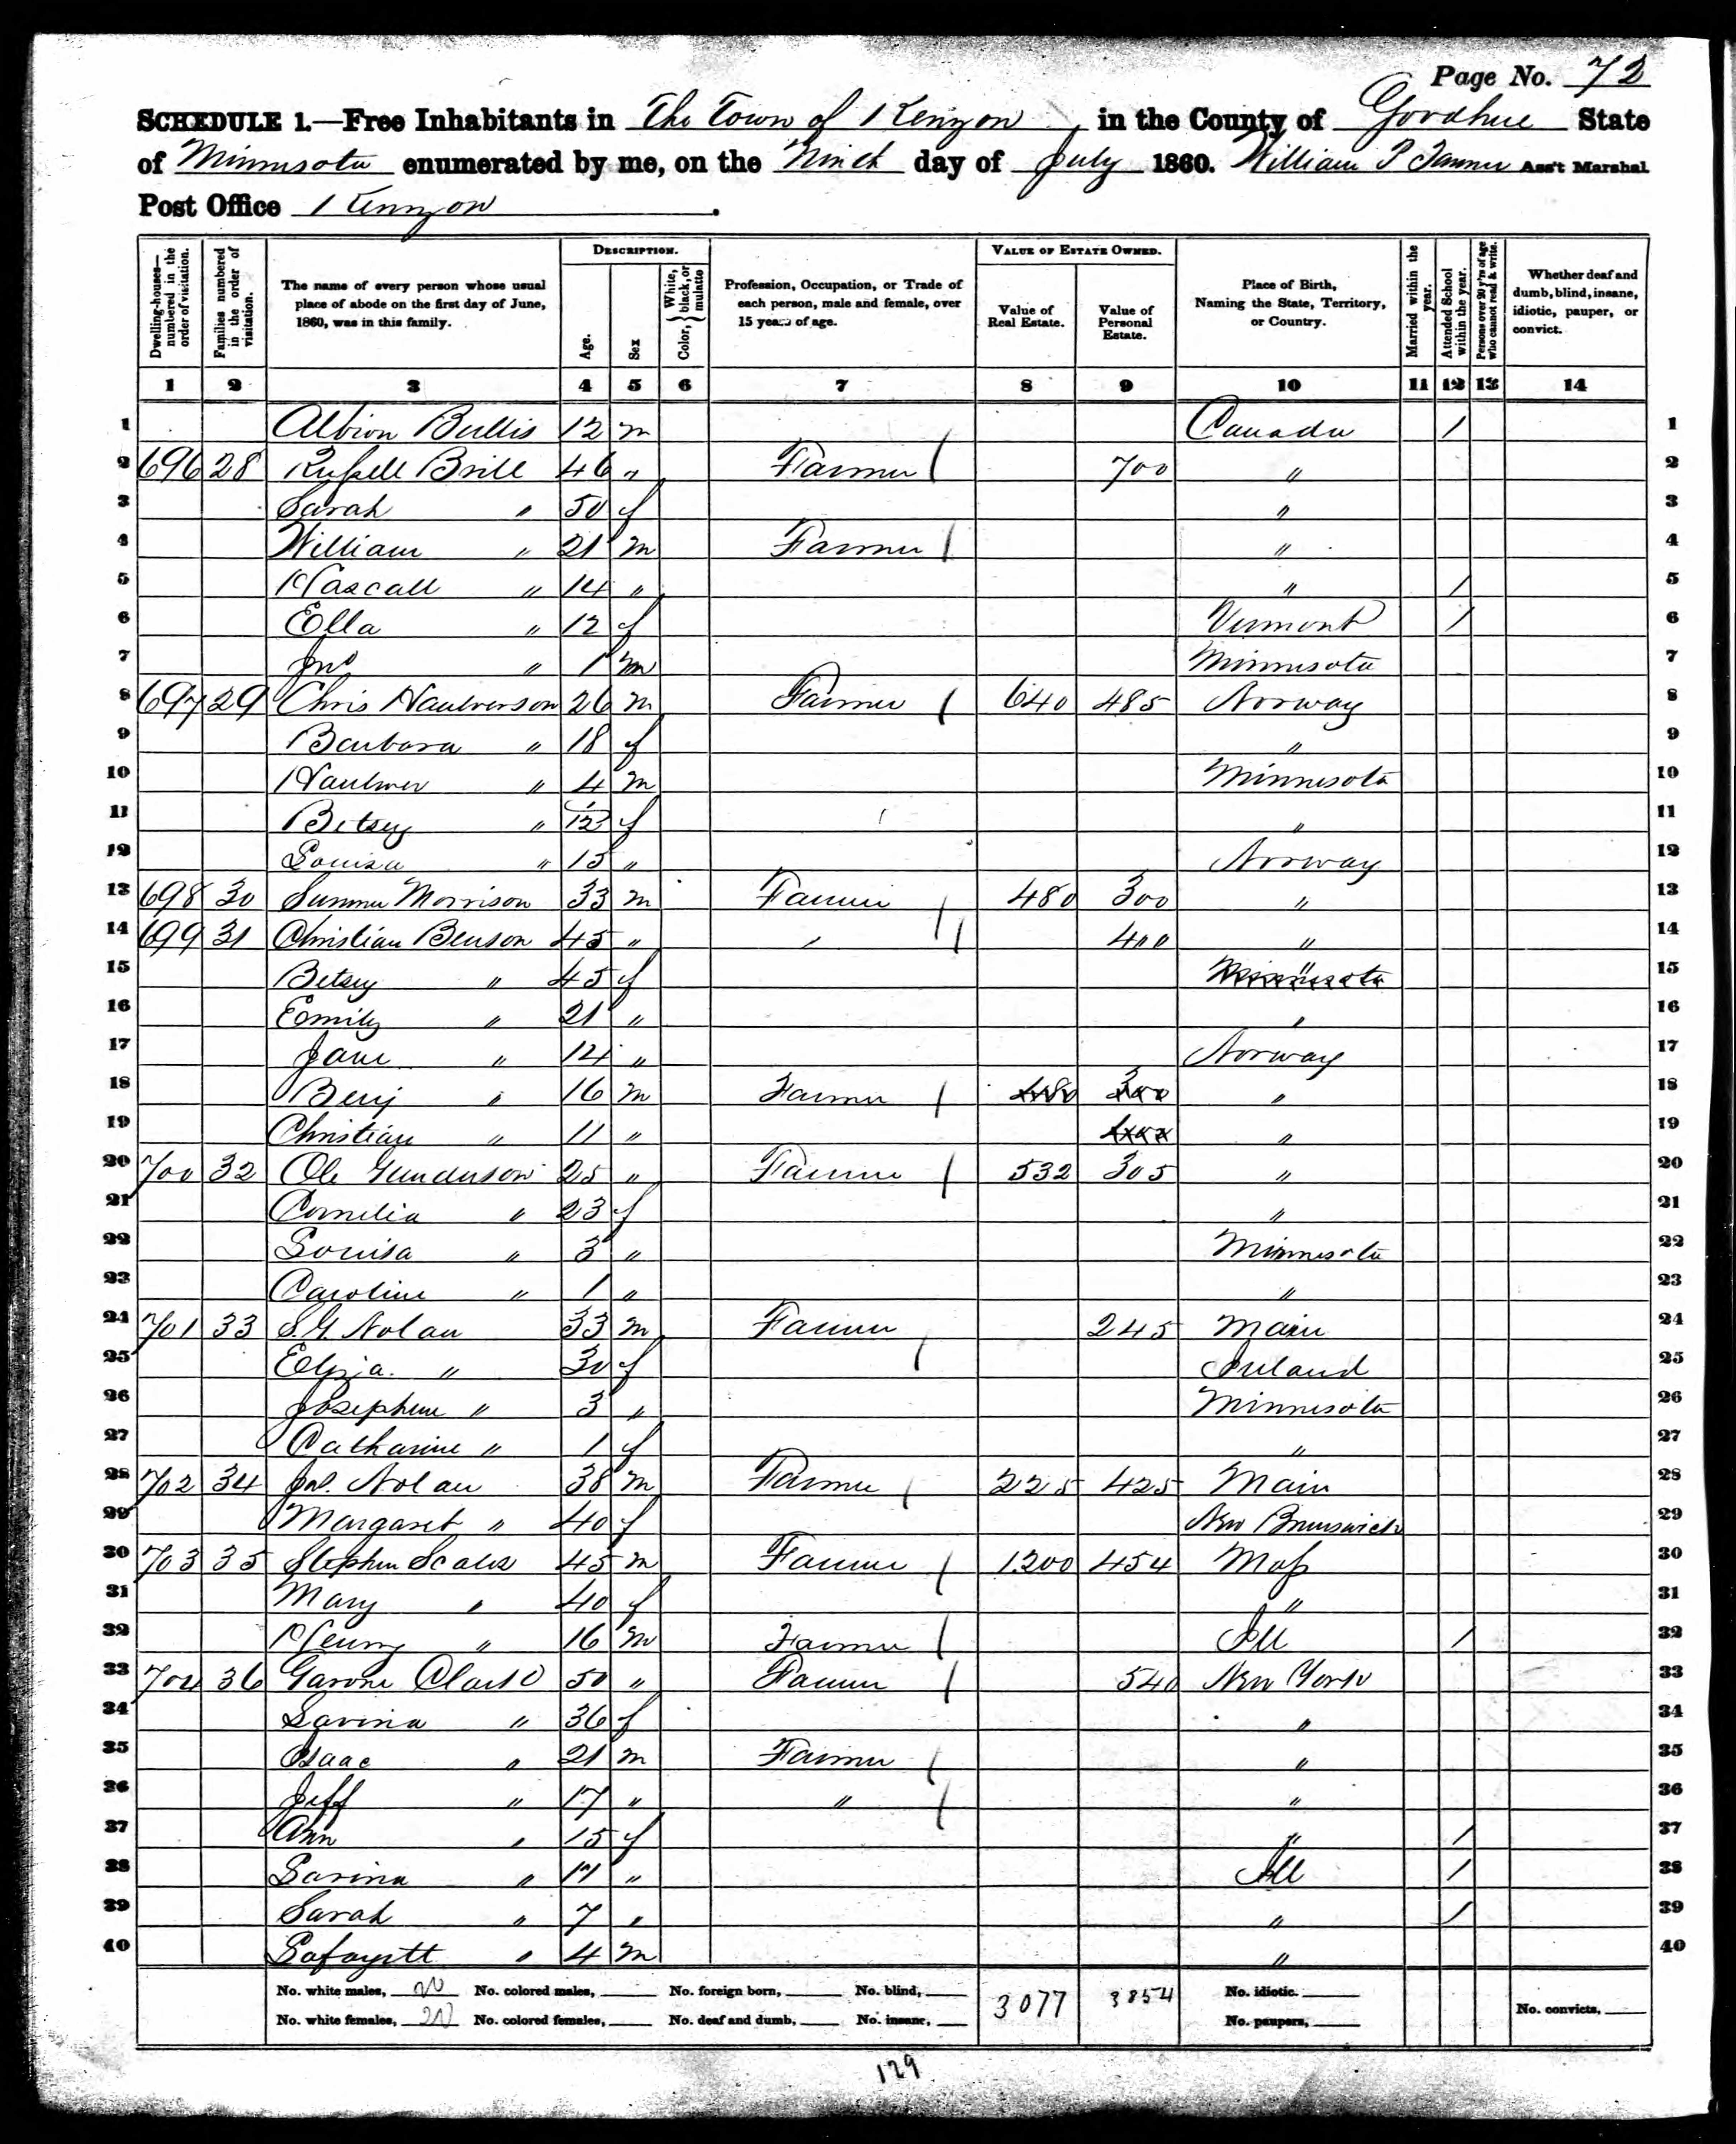 Page No. 72
SCHEDULE 1.—Free Inhabitants in The Town of Kenyon, in the County of Goodhue State
of Minnesota enumerated by me, on the Ninth day of July 1860. William P Tanner Ass't Marshal
Post Office Kenyon.
Dwelling-houses—numbered in the order of visitation.
Families numbered in the order of visitation.
The name of every person whose usual place of abode on the first day of June, 1860, was in this family.
DESCRIPTION.
Age.
Sex
Color, { White, black, or mulatto
Profession, Occupation, or Trade of each person, male and female, over 15 years of age.
VALUE OF ESTATE OWNED.
Value of Real Estate.
Value of Personal Estate.
Place of Birth, Naming the State, Territory, or Country.
Married within the year.
Attended School within the year.
Persons over 20 y'rs of age who cannot read & write.
Whether deaf and dumb, blind, insane, idiotic, pauper, or convict.
1 2 3 4 5 6 7 8 9 10 11 12 13 14
1 Albion Bullis 12 m Canada / 1
2 696 28 Russell Brill 46 " Farmer 700 " 2
3 Sarah " 50 f " 3
4 William " 21 m Farmer " 4
5 Hascall " 14 " " / 5
6 Ella " 12 f Vermont / 6
7 Jno " 1 m Minnesota 7
8 697 29 Chris Haulverson 26 m Farmer 640 485 Norway 8
9 Barbara " 18 f " 9
10 Haulver " 4 m Minnesota 10
11 Betsey " 1/12 f " 11
12 Louisa " 15 " Norway 12
13 698 30 Morrison 33 m Farmer 480 300 " 13
14 699 31 Christian Benson 45 " " 400 " 14
15 Betsey " 45 f Minnesota " 15
16 Emily " 21 " " 16
17 Jane " 14 " Norway 17
18 Benj " 16 m Farmer 480 300 " 18
19 Christian " 11 " 400 " 19
20 700 32 Ole Gunderson 25 " Farmer 532 305 " 20
21 Cornelia " 23 f " 21
22 Louisa " 3 " Minnesota 22
23 Caroline " 1 " " 23
24 701 33 S.G. Nolan 33 m Farmer 245 Main 24
25 Eliza. " 30 f Ireland 25
26 Josephine " 3 " Minnesota 26
27 Catharine " 1 f " 27
28 702 34 Jas. Nolan 38 m Farmer 225 425 Main 28
29 Margaret " 40 f New Brunswick 29
30 703 35 Stephen Scales 45 m Farmer 1.200 454 Mass 30
31 Mary " 40 f " 31
32 Henry " 16 m Farmer Ill / 32
33 704 36 Clark 50 " Farmer 540 New York 33
34 Lavina " 36 f " 34
35 Isaac " 21 m Farmer " 35
36 Jeff " 17 " " " 36
37 Ann " 15 f " / 37
38 Lavina " 11 " Ill / 38
39 Sarah " 7 " " / 39
40 Lafayett " 4 m " 40
No. white males, 20 No. colored males, No. foreign born, No. blind, 3077 3854 No. idiotic. No. convicts,
No. white females, 20 No. colored females, No. deaf and dumb, No. insane, No. paupers,
129